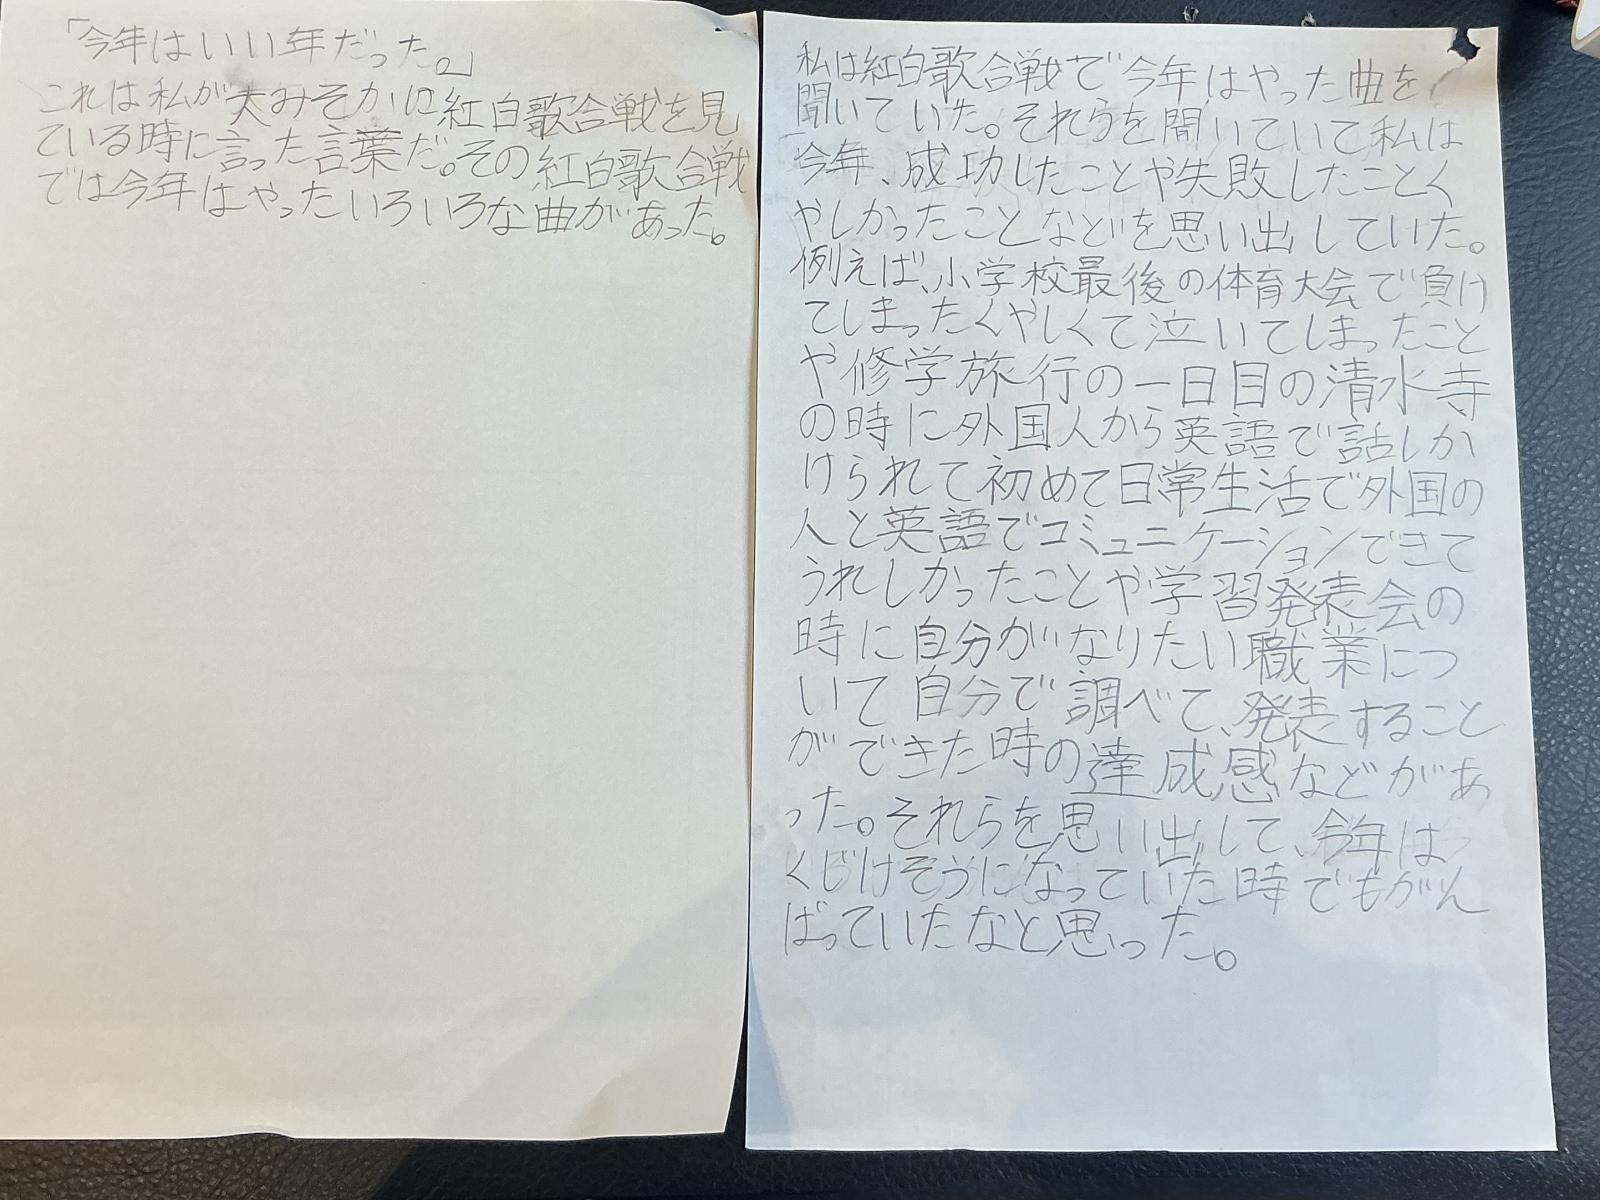 「今年はいい年だった。」
これは私が大みそかに紅白歌合戦を見
ている時に言った言葉だ。その紅白歌合戦
では今年はやったいろいろな曲があった。
私は紅白歌合戦で今年はやった曲を
聞いていた。それらを聞いていて私は
今年、成功したことや失敗したことく
やしかったことなどを思い出していた。
例えば、小学校最後の体育大会で負け
てしまったくやしくて泣いてしまったこと
や修学旅行の一日目の清水寺
の時に外国人から英語で話しか
けられて初めて日常生活で外国の
人と英語でコミュニケーションできて
うれしかったことや学習発表会の
時に自分がなりたい職業につ
いて自分で調べて、発表すること
ができた時の達成感などがあ
った。それらを思い出して、今年は
くじけそうになっていた時でもがん
ばっていたなと思った。